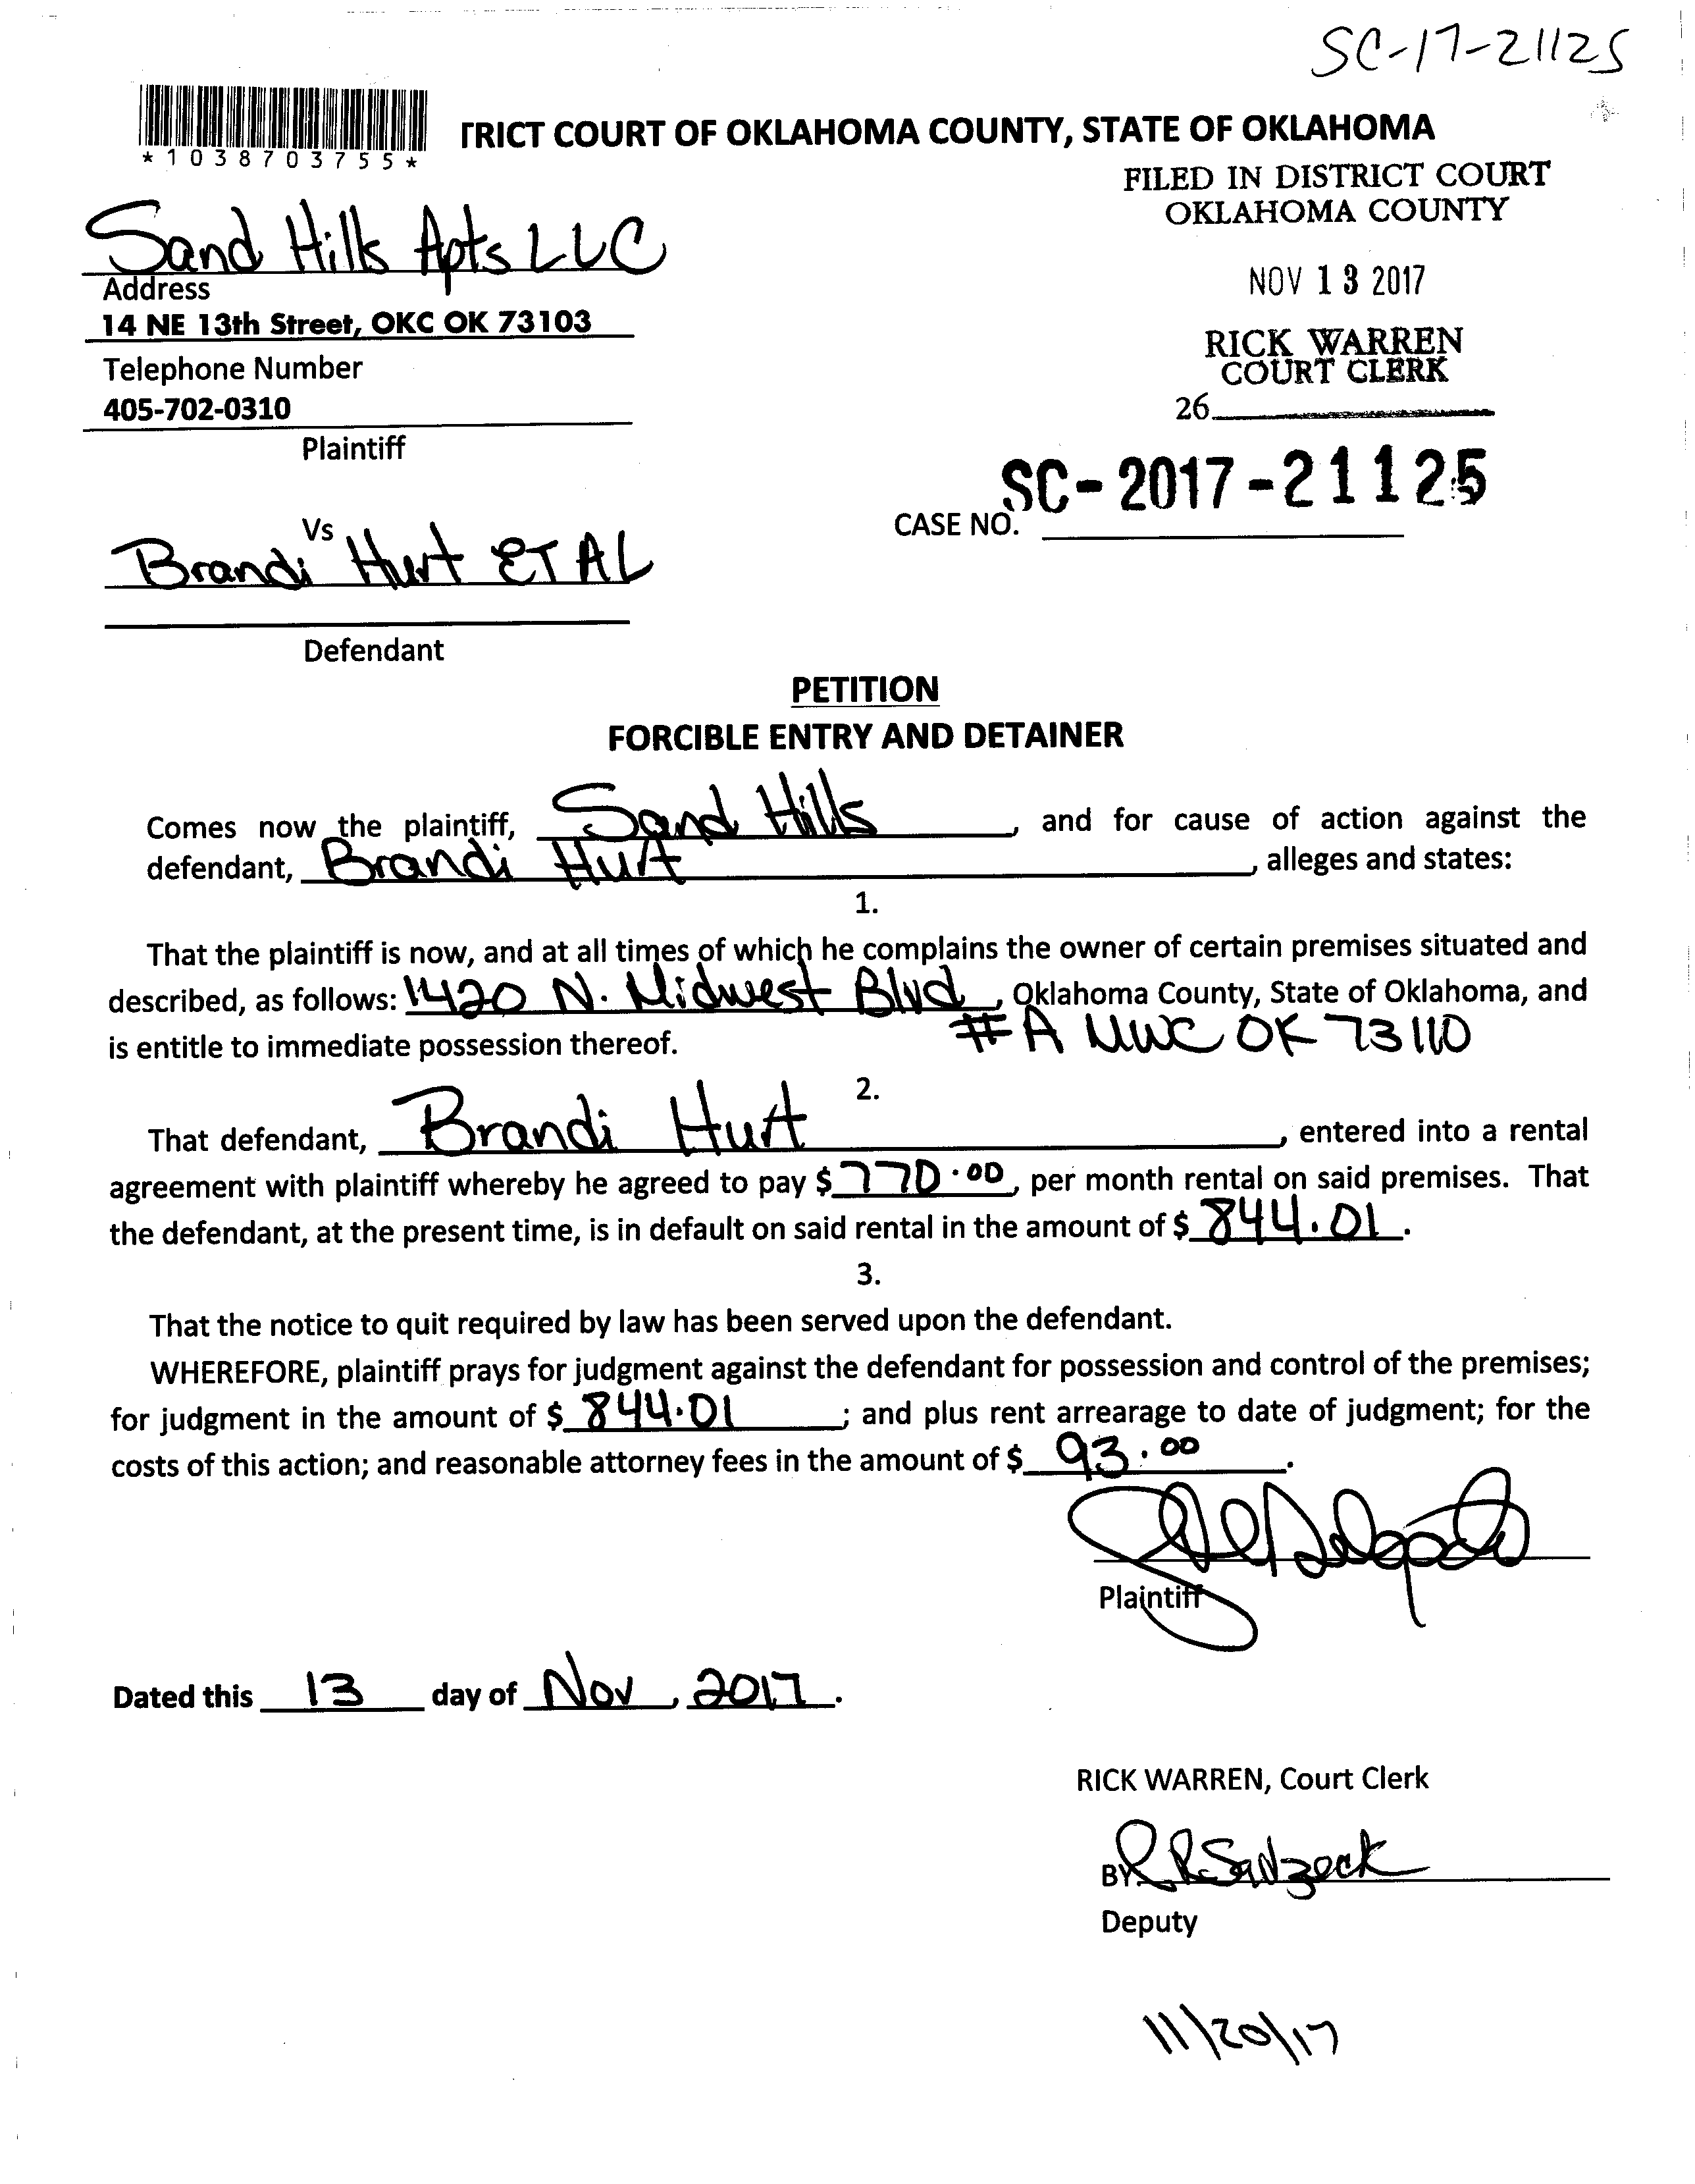 SC-17-21125
*1038703755*
TRICT COURT OF OKLAHOMA COUNTY, STATE OF OKLAHOMA
FILED IN DISTRICT COURT
OKLAHOMA COUNTY
Sand Hills Apts LLC
Address
NOV 13 2017
14 NE 13th Street, OKC OK 73103
RICK WARREN
COURT CLERK
Telephone Number
405-702-0310
26
Plaintiff
SC-2017-21125
CASE NO.
Vs
Brandi Hurt ET AL
Defendant
PETITION
FORCIBLE ENTRY AND DETAINER
Comes now the plaintiff, Sand Hills, and for cause of action against the
defendant, Brandi Hurt, alleges and states:
1.
That the plaintiff is now, and at all times of which he complains the owner of certain premises situated and
described, as follows: 1420 N. Midwest Blvd, Oklahoma County, State of Oklahoma, and
#A MWC OK 73110
is entitle to immediate possession thereof.
2.
That defendant, Brandi Hurt, entered into a rental
agreement with plaintiff whereby he agreed to pay $ 770.00, per month rental on said premises. That
the defendant, at the present time, is in default on said rental in the amount of $ 844.01.
3.
That the notice to quit required by law has been served upon the defendant.
WHEREFORE, plaintiff prays for judgment against the defendant for possession and control of the premises;
for judgment in the amount of $ 844.01; and plus rent arrearage to date of judgment; for the
costs of this action; and reasonable attorney fees in the amount of $ 93.00.
Plaintiff
Dated this 13 day of Nov, 2017.
RICK WARREN, Court Clerk
BY
Deputy
11/20/17